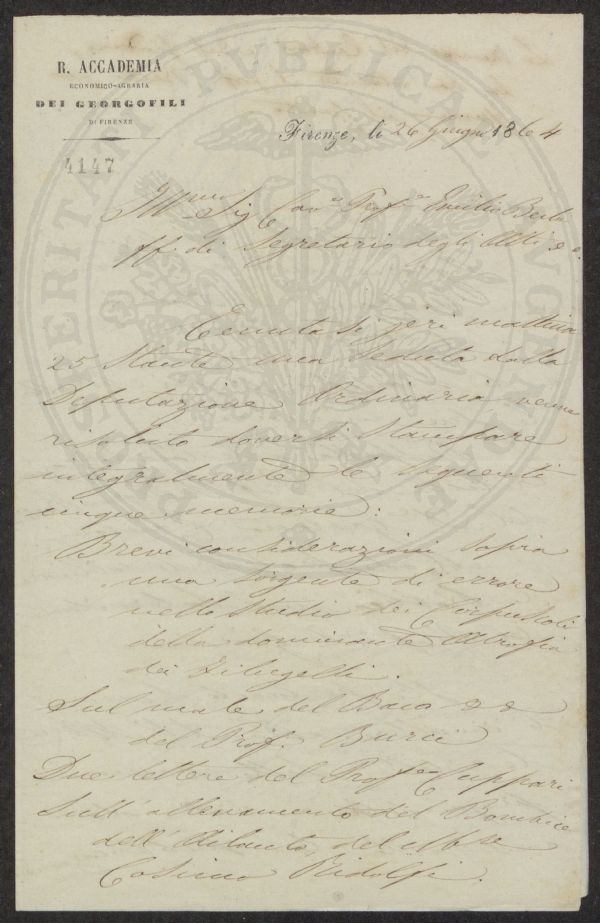 R. ACCADEMIA
ECONOMICO-AGRARIA
DEI GEORGOFILI
DI FIRENZE
4147
Firenze, li 26 Giugno 1864
Ill.mo Sig. Cav.e Prof.e Emilio Bechi
ff. di Segretario degli Atti &.
Tenutasi jeri mattina
25 Stante una Seduta dalla
Deputazione Ordinaria venne
risoluto doversi Stampare
integralmente le seguenti
cinque memorie:
Brevi considerazioni sopra
una sorgente di errore
nello Studio dei Corpuscoli
della dominante Atrofia
dei Filugelli.
Sul male del Baco &&
del Prof. Burci
Due lettere del Prof.e Cuppari
Sull' allevamento del Bombice
dell' Ailanto, del M.se
Cosimo Ridolfi.
PROSPERITATI PUBLICAE AUGENDAE